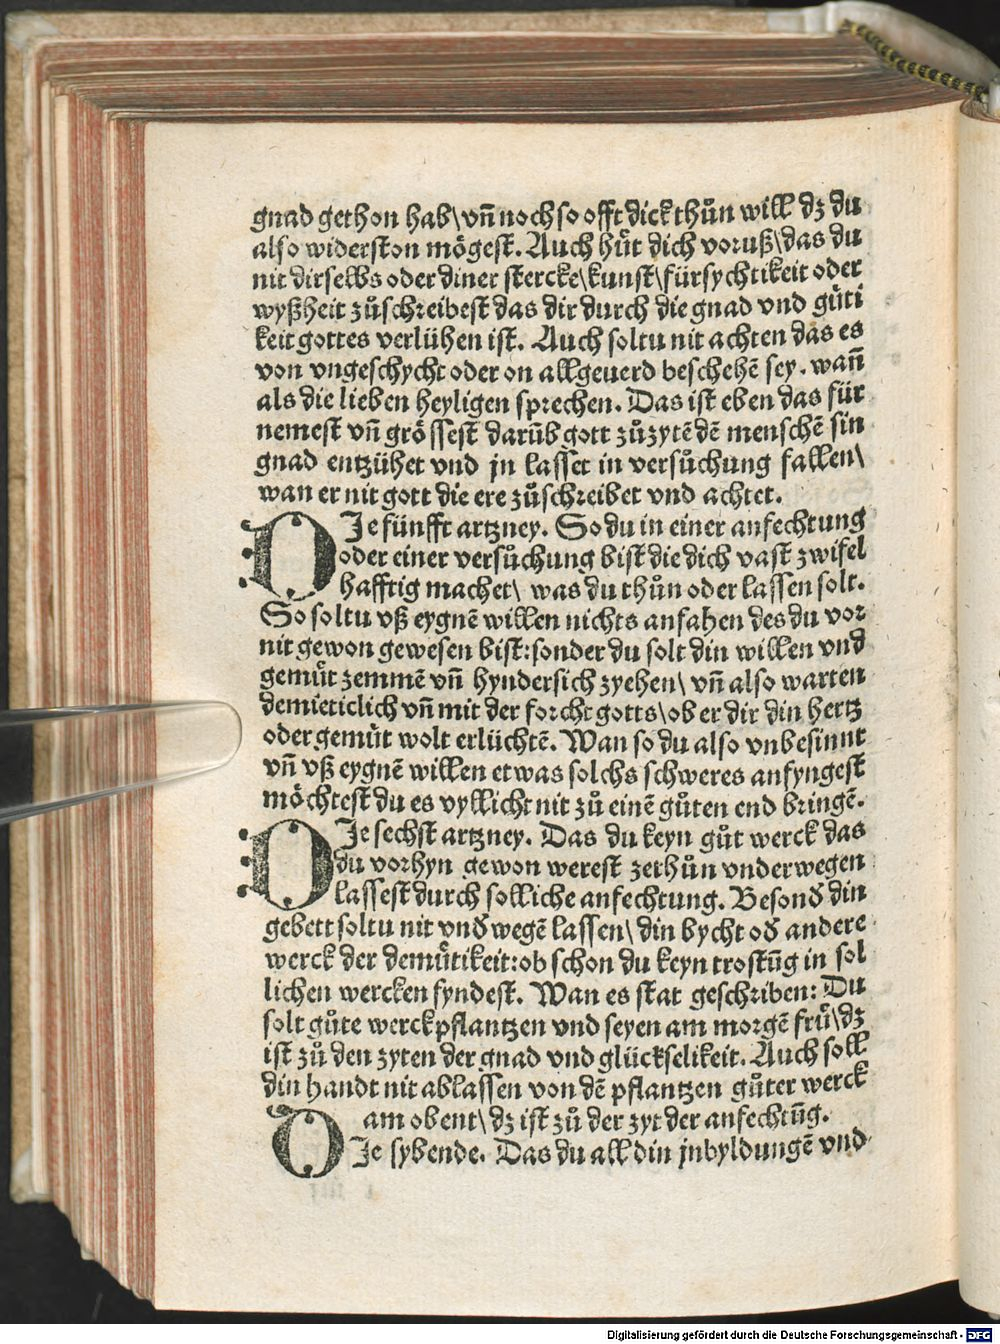 gnad gethon hab\ vn̄ noch so offt dick thůn will dz du
also widerston mögest. Auch hůt dich voruß\ das du
nit dir selbs oder diner stercke\ kunst\ fürsychtikeit oder
wyßheit zůschreibest das dir durch die gnad vnd gůti
keit gottes verlühen ist. Auch soltu nit achten das es
von vngeschycht oder on allgeuerd beschehē sey. wan̄
als die lieben heyligen sprechen. Das ist eben das für
nemest vn̄ grössest darūb gott zůzytē dē menschē sin
gnad entzühet vnd jn lasset in versůchung fallen\
wan er nit gott die ere zůschreibet vnd achtet.
DJe fünfft artzney. So du in einer anfechtung
oder einer versůchung bist die dich vast zwifel
hafftig machet\ was du thůn oder lassen solt.
So soltu vß eygnē willen nichts anfahen des du vor
nit gewon gewesen bist: sonder du solt din willen vnd
gemüt zemmē vn̄ hyndersich zyehen\ vn̄ also warten
demieticlich vn̄ mit der forcht gotts\ ob er dir din hertz
oder gemüt wolt erlüchtē. Wan so du also vnbesinnt
vn̄ vß eygnē willen etwas solchs schweres anfyngest
möchtest du es vyllicht nit zů einē gůten end bringē.
DJe sechst artzney. Das du keyn gůt werck das
du vorhyn gewon werest zethůn vnderwegen
lassest durch solliche anfechtung. Besonđ din
gebett soltu nit vnđwegē lassen\ din bycht ođ andere
werck der demůtikeit: ob schon du keyn trostūg in sol
lichen wercken fyndest. Wan es stat geschriben: Du
solt gůte werck pflantzen vnd seyen am morgē frů\ dz
ist zů den zyten der gnad vnd glückselikeit. Auch soll
din handt nit ablassen von dē pflantzen gůter werck
am obent\ dz ist zů der zyt der anfechtūg.
DJe sybende. Das du all din jnbyldungē vnd
Digitalisierung gefördert durch die Deutsche Forschungsgemeinschaft - DFG